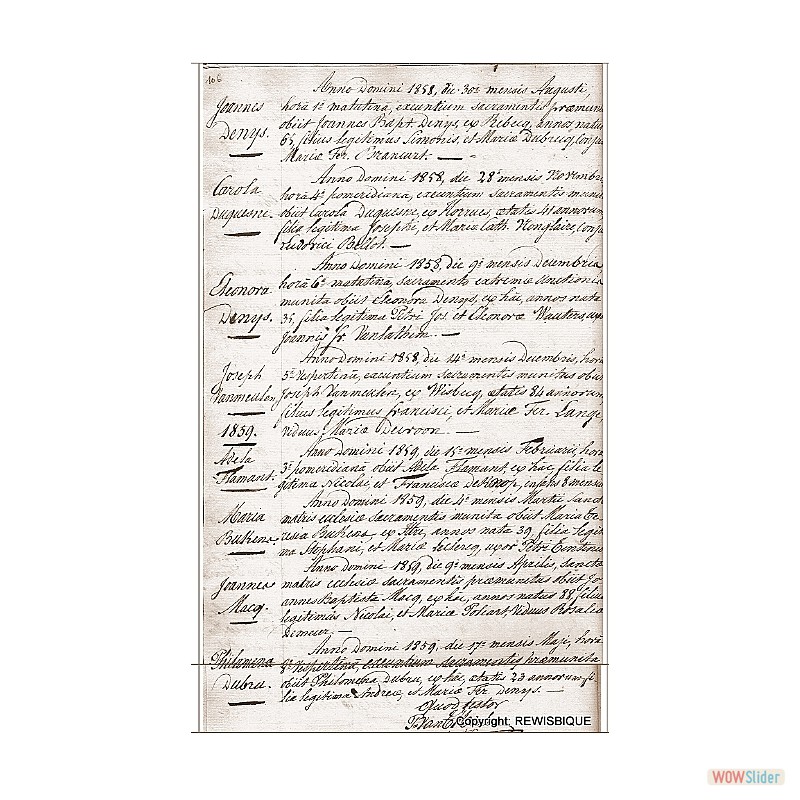 106
Joannes Denys.
Anno Domini 1858, die 30ª mensis Augusti,
horâ 1ª matutina, exeuntium sacramentis præmuni
obiit Joannes Bapt. Denys, ex Rebecq, annos natus
65, filius legitimus Simonis, et Mariæ Dubrucq, conjux
Mariæ Ter. Brancart. —
Carola Duquesne.
Anno Domini 1858, die 28ª mensis Novembris
horâ 4ª pomeridiana, exeuntium sacramentis munita
obiit Carola Duquesne, ex Horrues, ætatis 41 annorum
filia legitima Josephi, et Mariæ Cath. conju
Bellot. —
Eleonora Denys.
Anno Domini 1858, die 9ª mensis Decembris
horâ 6ª matutina, sacramento extremæ unctionis
munita obiit Eleonora Denys, ex hac, annos nata
35, filia legitima Petri Jos. et Eleonoræ Wauters, uxor
Joannis Fr. Vanlathem. —
Joseph Vanmeulen,
Anno Domini 1858, die 14ª mensis Decembris, horâ
5ª vespertinâ, exeuntium sacramentis munitus obiit
Joseph Vanmeulen, ex Wisbecq, ætatis 84 annorum
filius legitimus Francisci, et Mariæ Ter. Lange
viduus Mariæ Decroon. —
1859.
Adela Flamant.
Anno Domini 1859, die 15ª mensis Februarii, horâ
3ª pomeridianâ obiit Adela Flamant, ex hac, filia le
gitima Nicolai, et Franciscæ infans 8 mensium
Maria Bukens
Anno Domini 1859, die 4ª mensis Martii sanctæ
matris ecclesiæ sacramentis munita obiit Maria The
resia Bukens, ex annos nata 39, filia legiti
ma Stephani, et Mariæ Leclercq, uxor Petri
Joannes Macq.
Anno Domini 1859, die 9ª mensis Aprilis, sanctæ
matris ecclesiæ sacramentis præmunitus obiit Jo
annes Baptista Macq, ex hac, annos natus 88, filius
legitimus Nicolai, et Mariæ viduus Rosaliæ
Demeur. —
Philomena Dubru.
Anno Domini 1859, die 17ª mensis Maji, horâ
8ª vespertinâ, exeuntium sacramentis præmunita
obiit Philomena Dubru, ex hac, ætatis 23 annorum fi
lia legitima Andreæ, et Mariæ Ter. Denys. —
Quod testor
Copyright: REWISBIQUE
WOWSlider